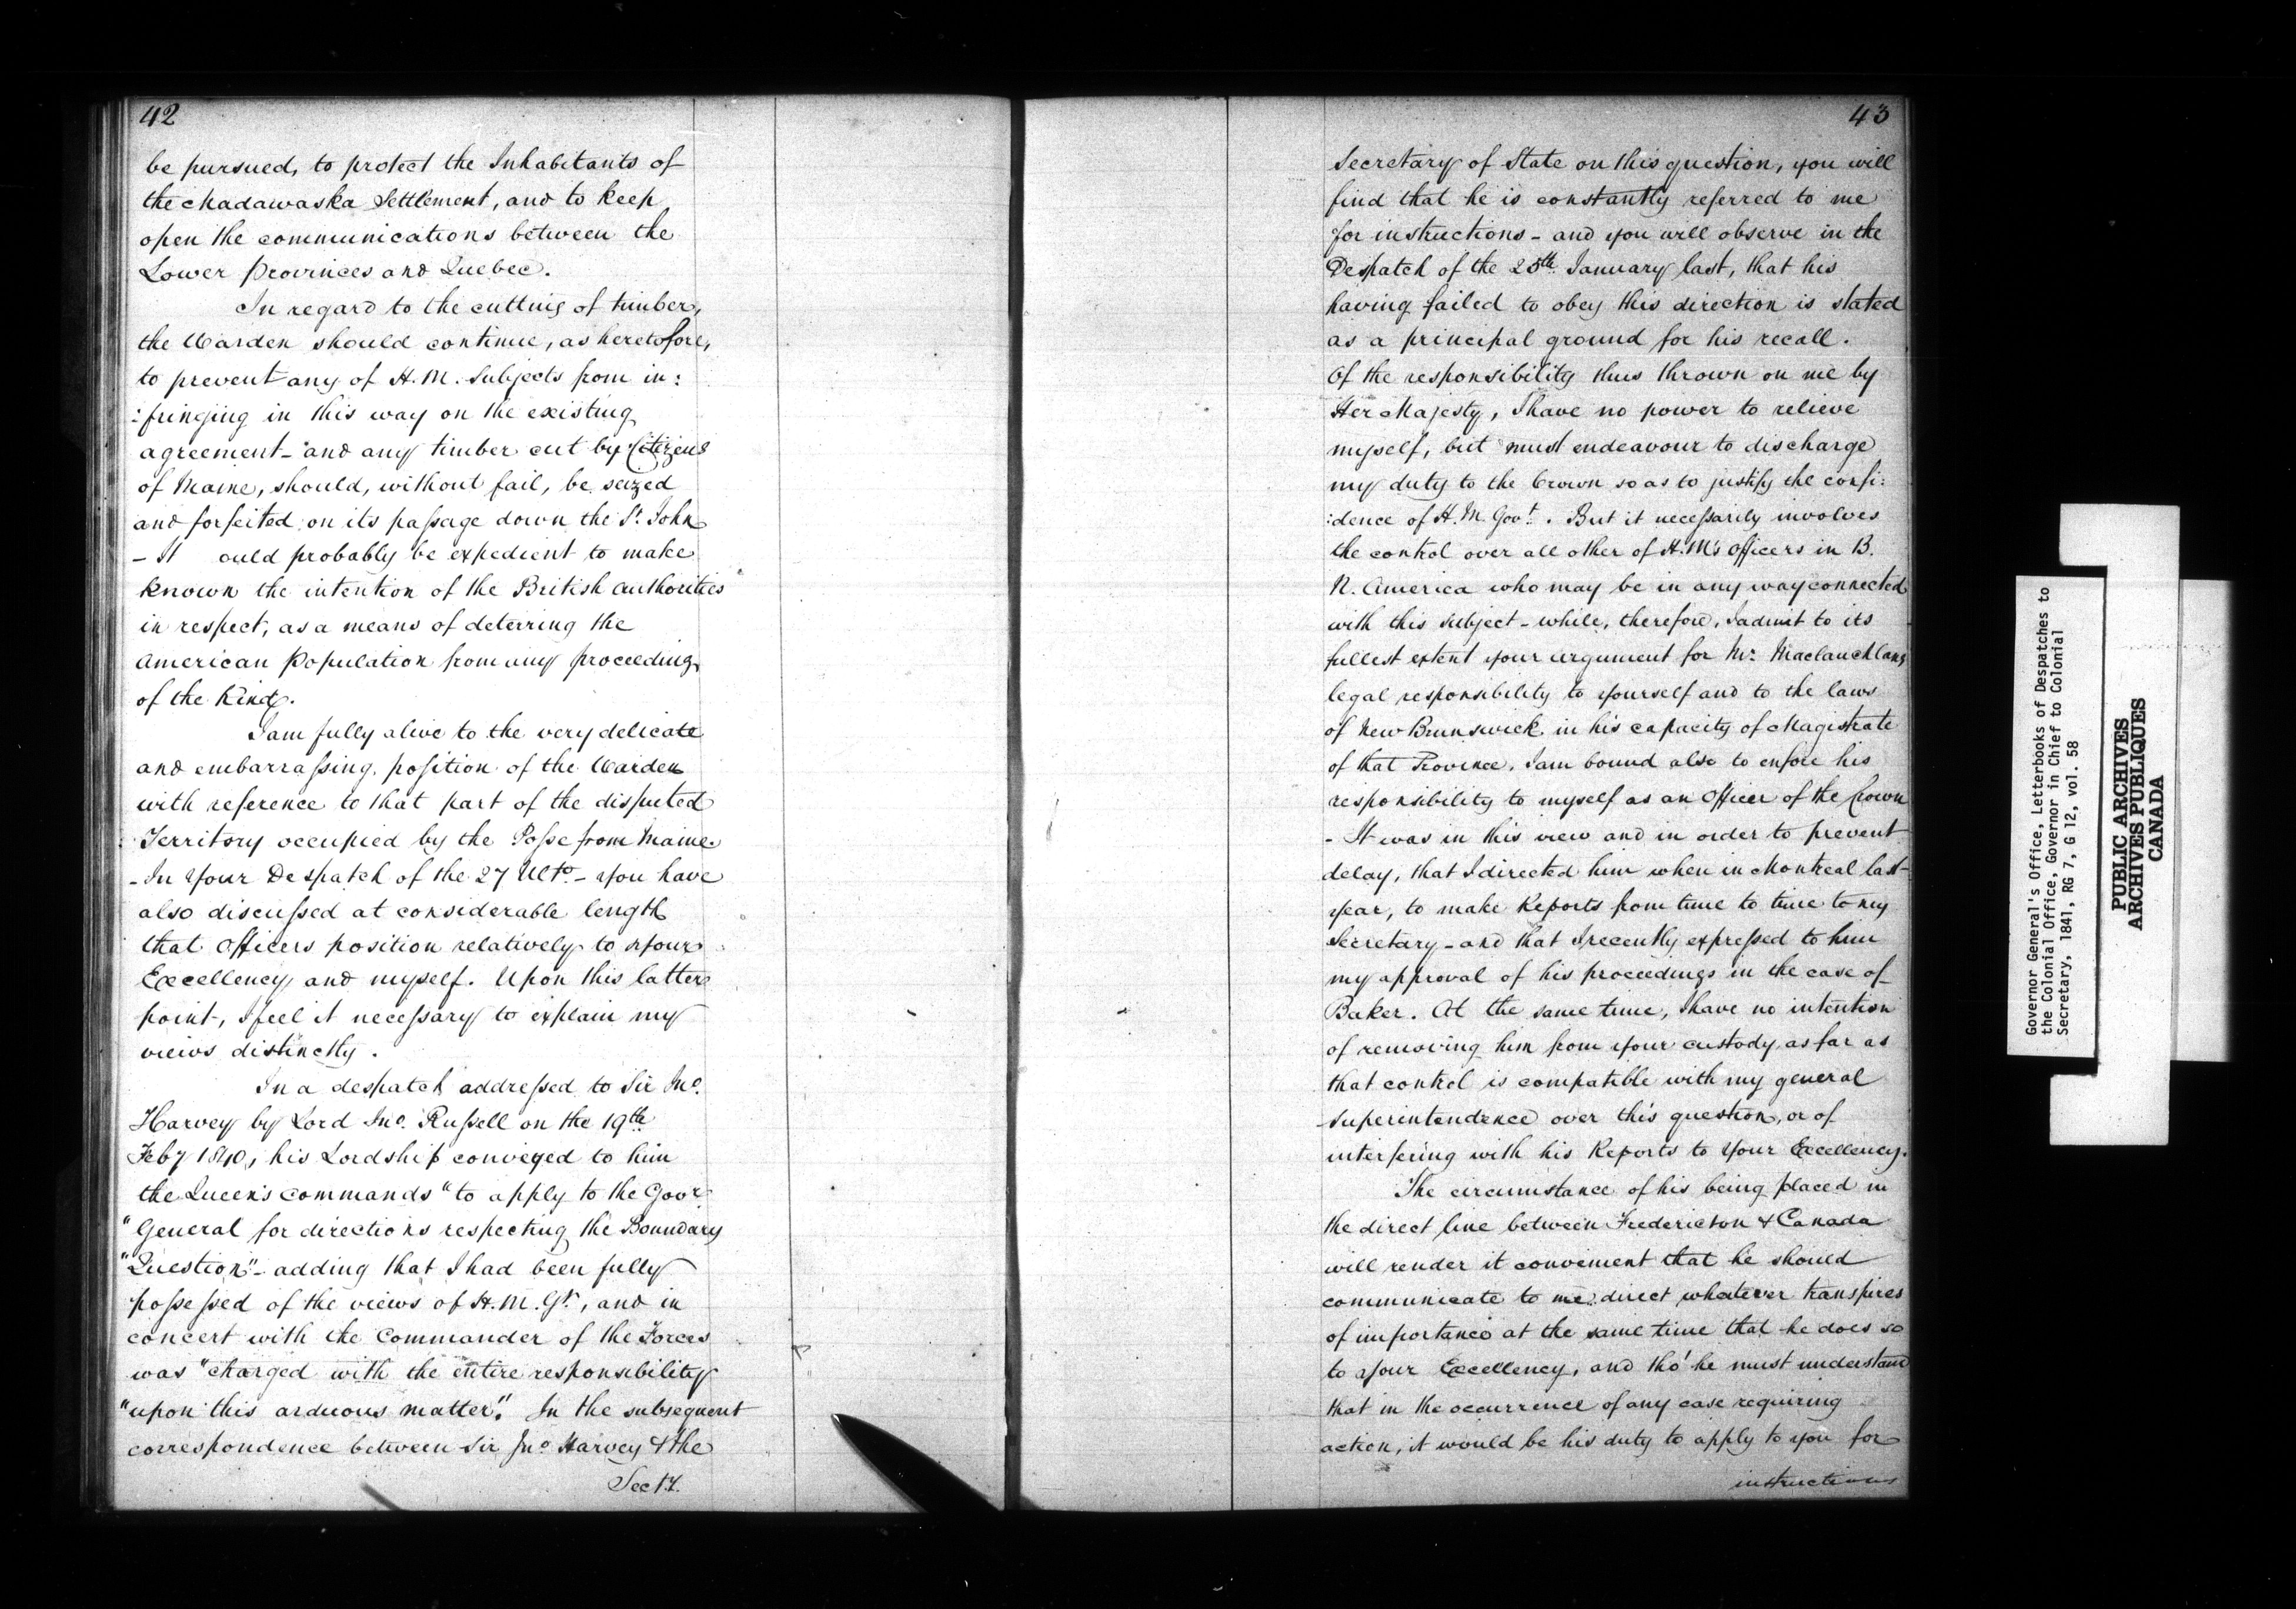 42
be pursued, to protect the Inhabitants of
the Madawaska Settlement, and to keep
open the communications between the
Lower Provinces and Quebec.
In regard to the cutting of timber,
the Warden should continue, as heretofore,
to prevent any of H. M. Subjects from in:
:fringing in this way on the existing
agreement - and any timber cut by Citizens
of Maine, should, without fail, be seized
and forfeited on its passage down the St. John
- It ould probably be expedient to make
known the intention of the British Authorities
in respect, as a means of deterring the
American Population from any proceeding
of the kind.
I am fully alive to the very delicate
and embarrassing position of the Warden
with reference to that part of the disputed
Territory occupied by the Posse from Maine.
- In Your Despatch of the 27 Ulto. - you have
also discussed at considerable length
that Officers position relatively to Your
Excellency and myself. Upon this latter
point, I feel it necessary to explain my
views distinctly.
In a despatch addressed to Sir Jno.
Harvey by Lord Jno. Russell on the 19th
Feby 1840, his Lordship conveyed to him
the Queen's commands "to apply to the Govr.
"General for directions respecting the Boundary
"Question" - adding that I had been fully
possessed of the views of H. M. Gt., and in
concert with the Commander of the Forces
was "charged with the entire responsibility
"upon this arduous matter". In the subsequent
correspondence between Sir Jno. Harvey & the
Secty.
43
Secretary of State on this question, you will
find that he is constantly referred to me
for instructions - and you will observe in the
Despatch of the 25th January last, that his
having failed to obey this direction is stated
as a principal ground for his recall.
Of the responsibility thus thrown on me by
Her Majesty, I have no power to relieve
myself, but must endeavour to discharge
my duty to the Crown so as to justify the confi:
:dence of H. M. Govt. But it necessarily involves
the control over all other of H. M's Officers in B.
N. America who may be in any way connected
with this subject - while, therefore, I admit to its
fullest extent your argument for Mr. Maclauchlans
legal responsibility to yourself and to the laws
of New Brunswick in his capacity of Magistrate
of that Province, I am bound also to enfore his
responsibility to myself as an Officer of the Crown
- It was in this view and in order to prevent
delay, that I directed him when in Montreal last
year, to make Reports from time to time to my
Secretary - and that I recently expressed to him
my approval of his proceedings in the case of
Baker. At the same time, I have no intention
of removing him from your custody as far as
that control is compatible with my general
superintendence over this question, or of
interfering with his Reports to Your Excellency.
The circumstance of his being placed in
the direct line between Fredericton & Canada
will render it convenient that he should
communicate to me direct whatever transpires
of importance at the same time that he does so
to Your Excellency, and tho' he must understand
that in the occurrence of any case requiring
action, it would be his duty to apply to you for
instructions
Governor General's Office, Letterbooks of Despatches to
the Colonial Office, Governor in Chief to Colonial
Secretary, 1841, RG 7, G 12, vol. 58
PUBLIC ARCHIVES
ARCHIVES PUBLIQUES
CANADA